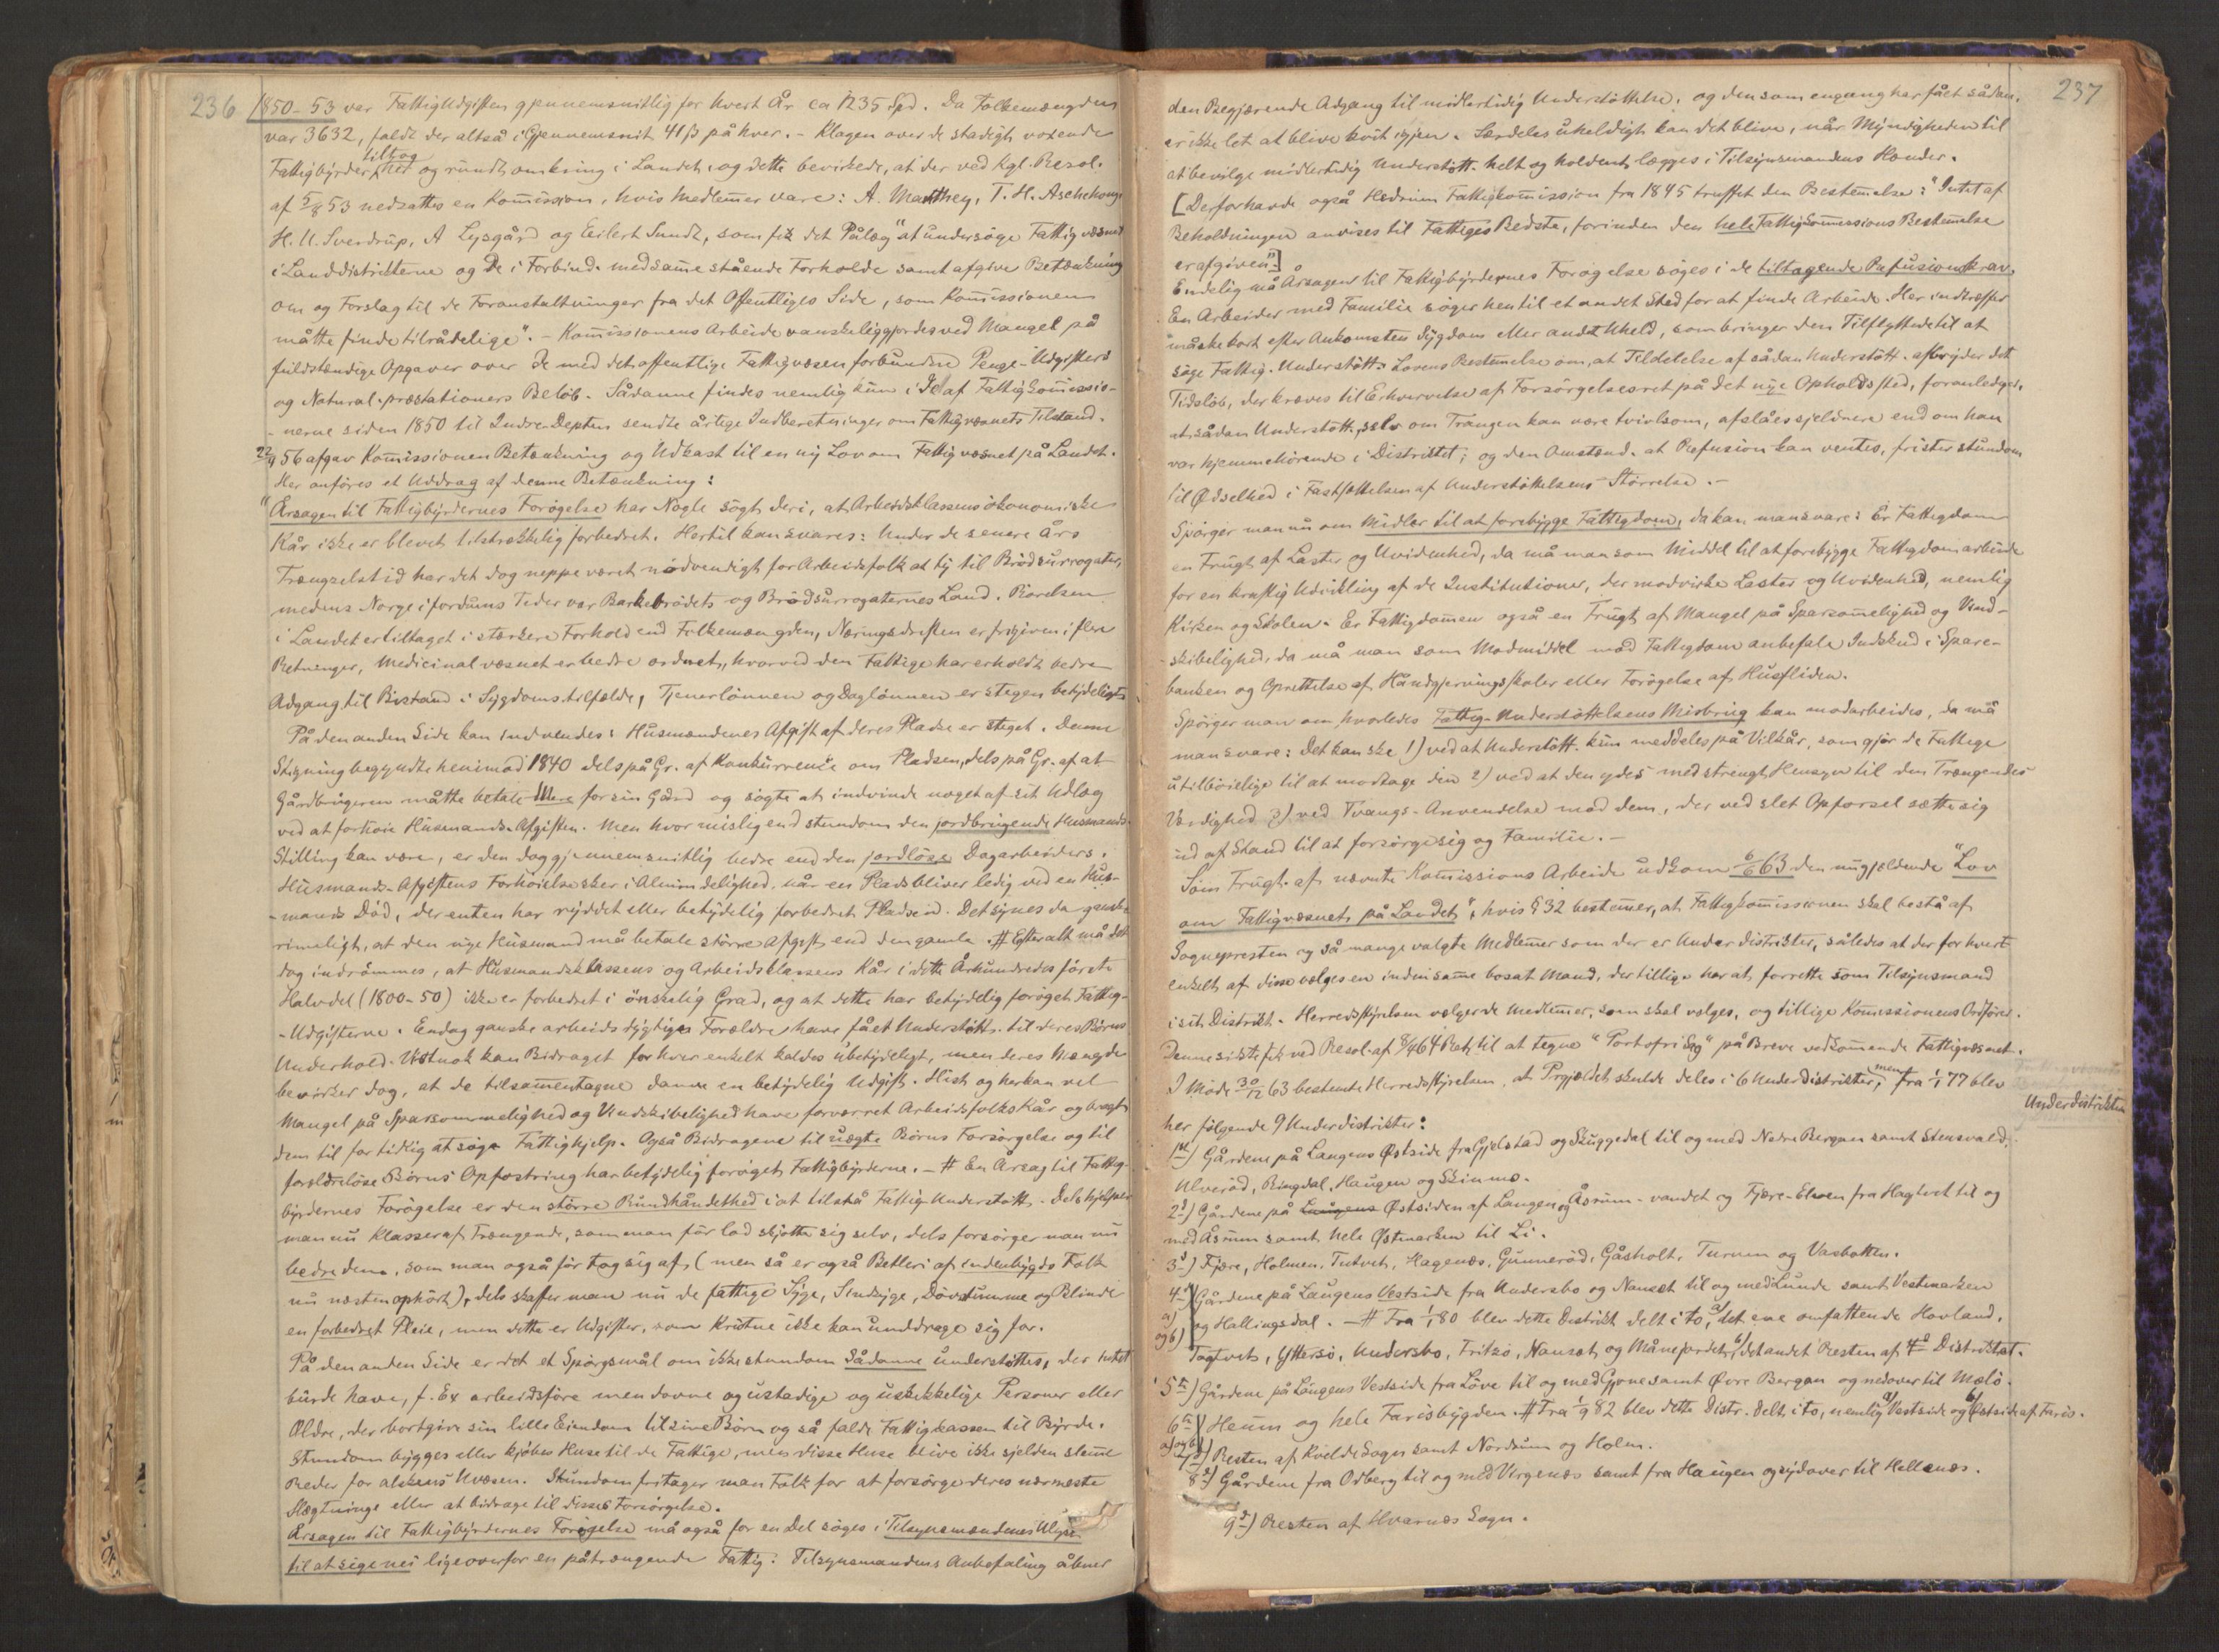 236
1850-53 var Fattigudgiften gjennemsnitlig for hvert År ca 1235 Spd. Da Folkemængden
var 3632, faldt der altså i Gjennemsnit 41 ß på hver. - Klagen over de stadigt voxende
Fattigbyrder tiltog her og rundt omkring i Landet, og dette bevirkede, at der ved Kgl. Resol.
af 5/8 53 nedsattes en Kommission, hvis Medlemmer vare: A. Manthey, T. H. Aschehoug
H. U. Sverdrup, A Lysgård og Eilert Sundt, som fik det Pålæg "at undersøge Fattigvæsnet
i Landdistrikterne og de i Forbind. med samme stående Forholde samt afgive Betænkning
om og Forslag til de Foranstaltninger fra det Offentliges Side, som Kommissionen
måtte finde tilrådelige". - Kommissionens Arbeide vanskeliggjordes ved Mangel på
fuldstændige Opgaver over de med det offentlige Fattigvæsen forbundne Penge-Udgifters
og Natural-præstationers Beløb. Sådanne findes nemlig kun i de af Fattigkommissio-
-nerne siden 1850 til Indre-Depten sendte årlige Indberetninger om Fattigvæsnets Tilstand.
22/9 56 afgav Kommissionen Betænkning og Udkast til en ny Lov om Fattigvæsnet på Landet.
Her anføres et Uddrag af denne Betænkning:
"Årsagen til Fattigbyrdernes Forøgelse har Nogle søgt deri, at Arbeidsklassens økonomiske
Kår ikke er blevet tilstrækkelig forbedret. Hertil kan svares: Under de senere Års
Trængselstid har det dog neppe været nødvendigt for Arbeidsfolk at ty til Brødsurrogater,
medens Norge i fordums Tider var Barkebrødets og Brødsurrogaternes Land. Rørelsen
i Landet er tiltaget i stærkere Forhold end Folkemængden, Næringsdriften er frigiven i flere
Retninger, Medicinalvæsnet er bedre ordnet, hvorved den Fattige har erholdt bedre
Adgang til Bistand i Sygdomstilfælde, Tjenerlønnen og Daglønnen er stegen betydeligt
På den anden Side kan indvendes: Husmændenes Afgift af deres Pladse er steget. Denne
Stigning begyndte henimod 1840 dels på Gr. af Konkurrence om Pladsen, dels på Gr. af at
Gårdbrugeren måtte betale Mere for sin Gård og søgte at indvinde noget af sit Udlæg
ved at forhøie Husmands-Afgiften. Men hvor mislig end stundom den jordbrugende Husmands-
Stilling kan være, er den dog gjennemsnitlig bedre end den jordløse Dagarbeiders.
Husmands-Afgiftens Forhøielse sker i Almindelighed, når en Plads bliver ledig ved en Hus-
-mands Død, der enten har ryddet eller betydelig forbedret Pladsen. Det synes da ganske
rimeligt, at den nye Husmand må betale større Afgift end den gamle. # Efter alt må det
dog indrømmes, at Husmandsklassens og Arbeidsklassens Kår i dette Århundredes første
Halvdel (1800-50) ikke er forbedret i ønskelig Grad, og at dette har betydelig forøget Fattig-
-Udgifterne. Endog ganske arbeidsdygtige Forældre have fået Understøtt. til deres Børns
Underhold. Vistnok kan Bidraget for hver enkelt kaldes ubetydeligt, men deres Mængde
bevirker dog, at de tilsammentagne danne en betydelig Udgift. Hist og her kan vel
Mangel på Sparsommelighed og Vindskibelighed have forværret Arbeidsfolks Kår og bragt
dem til for tidlig at søge Fattighjelp. Også Bidragene til uægte Børns Forsørgelse og til
forældreløse Børns Opfostring har betydelig forøget Fattigbyrderne. - # En Årsag til Fattig-
byrdernes Forøgelse er den større Rundhåndethed i at tilstå Fattig-Understøtt. Dels hjelper
man nu Klasser af Trængende, som man før lod skjøtte sig selv, dels forsørger man nu
bedre dem, som man også før tog sig af, (men så er også Betleri af indenbygds Folk
nu næsten ophørt), dels skaffer man nu de fattige Syge, Sindsyge, Døvstumme og Blinde
en forbedret Pleie, men dette er Udgifter, som Kristne ikke kan unddrage sig for.
På den anden Side er det et Spørgsmål om ikke stundom Sådanne understøttes, der intet
burde have, f. Ex arbeidsføre men dovne og ustadige og uskikkelige Personer eller
Oldre, der bortgive sin lille Eiendom til sine Børn og så falde Fattigkassen til Byrde.
Stundom bygges eller kjøbes Huse til de Fattige, men disse Huse blive ikke sjelden slemme
Reder for alskens Uvæsen. Stundom fritager man Folk for at forsørge deres nærmeste
Slægtninge eller at bidrage til disses Forsørgelse.
Årsagen til Fattigbyrdernes Forøgelse må også for en Del søges i Tilsynsmændenes Ulyst
til at sige nei ligeoverfor en påtrængende Fattig. Tilsynsmandens Anbefaling åbner
237
den Begjærende Adgang til midlertidig Understøttelse, og den som engang har fået sådan,
er ikke let at blive kvit igjen. Særdeles uheldigt kan det blive, når Myndigheden til
at bevilge midlertidig Understøtt. helt og holdent lægges i Tilsynsmandens Hænder.
[Derfor havde også Hedrum Fattigkommission fra 1845 truffet den Bestemmelse: "Intet af
Beholdningen anvises til Fattiges Bedste, forinden den hele Fattigkommissions Bestemmelse
er afgiven".]
Endelig må Årsagen til Fattigbyrdernes Forøgelse søges i de tiltagende Refusionskrav.
En Arbeider med Familie søger hen til et andet Sted for at finde Arbeide. Her indtræffer
måske kort efter Ankomsten Sygdom eller andet Uheld, som bringer den Tilflyttede til at
søge Fattig-Understøtt. Lovens Bestemmelse om, at Tildelelse af sådan Understøtt. afbryder det
Tidsløb, der kræves til Erhvervelse af Forsørgelsesret på det nye Opholdssted, foranlediger,
at sådan Understøtt., selv om Trangen kan være tvivlsom, afslåes sjeldnere end om han
var hjemmehørende i Distriktet; og den Omstænd. at Refusion kan ventes, frister stundom
til Ødselhed i Fastsættelsen af Understøttelsens Størrelse. -
Spørger man nu om Midler til at forebygge Fattigdom, da kan man svare: Er Fattigdom
en Frugt af Laster og Uvidenhed, da må man som Middel til at forebygge Fattigdom arbeide
for en kraftig Udvikling af de Institutioner, der modvirke Laster og Uvidenhed, nemlig
Kirken og Skolen. Er Fattigdommen også en Frugt af Mangel på Sparsommelighed og Vind-
-skibelighed, da må man som Modmiddel mod Fattigdom anbefale Indskud i Spare-
banken og Oprettelse af Håndgjerningsskoler eller Forøgelse af Husfliden.
Spørger man om hvorledes Fattig-Understøttelsens Misbrug kan modarbeides, da må
man svare: Det kan ske 1) ved at Understøtt. kun meddeles på Vilkår, som gjør de Fattige
utilbøielige til at modtage den 2) ved at den ydes med strengt Hensyn til den Trængendes
Værdighed 3) ved Tvangs-Anvendelse mod dem, der ved slet Opførsel sætte sig
ud af Stand til at forsørge sig og Familie. -
Som Frugt af nævnte Kommissions Arbeide udkom 6/6 63 den nugjældende "Lov
om Fattigvæsnet på Landet", hvis § 32 bestemmer, at Fattigkommissionen skal bestå af
Sognepresten og så mange valgte Medlemmer som der er Underdistrikter, således at der for hvert
enkelt af disse vælges en inden samme bosat Mand, der tillige har at forrette som Tilsynsmand
i sit Distrikt. Herredsstyrelsen vælger de Medlemmer, som skal vælges, og tillige Kommissionens Ordfører.
Denne sidste fik ved Resol. af 8/4 64 Ret til at tegne "Portofri Sag" på Breve vedkommende Fattigvæsnet.
I Møde 30/12 63 bestemte Herredsstyrelsen, at Prgjældet skulde deles i 6 Underdistrikter, men fra 1/1 77 blev
Underdistrikter
her følgende 9 Underdistrikter:
1st) Gårdene på Laugens Østside fra Gjelstad og Skuggedal til og med Nedre Bergan samt Stensvald,
Ulverød, Ringdal, Haugen og Skinmo.
2d) Gårdene på Laugens Østsiden af Laugen og Åsrum-vandet og Fjære-Elven fra Hagtvet til og
med Åsrum samt hele Østmarken til Li.
3d) Fjære, Holmen, Tutvet, Hagenæs, Gunnerød, Gåsholt, Turum og Vasbotten.
4d) Gårdene på Laugens Vestside fra Undersbo og Nanset til og med Lunde samt Vestmarken
a) og Hallingsdal. - # Fra 1/1 80 blev dette Distrikt delt i to, a) det ene omfattende Hovland,
og b) Tagtvet, Yttersø, Undersbo, Fritzø, Nanset og Månejordet, b) det andet Resten af 4d Distriktet.
5te) Gårdene på Laugens Vestside fra Løve til og med Gjone samt Øvre Bergan og nedover til Mælø.
6te) Heum og hele Farisbygden. # Fra 1/9 82 blev dette Distr. delt i to, nemlig a) Vestside og b) Østside af Faris.
a) og b)
7d) Resten af Kvelde Sogn samt Nordrum og Holm.
8d) Gårdene fra Odberg til og med Vergenæs samt fra Haugen og sydover til Hellenæs.
9d) Resten af Hvarnæs Sogn.